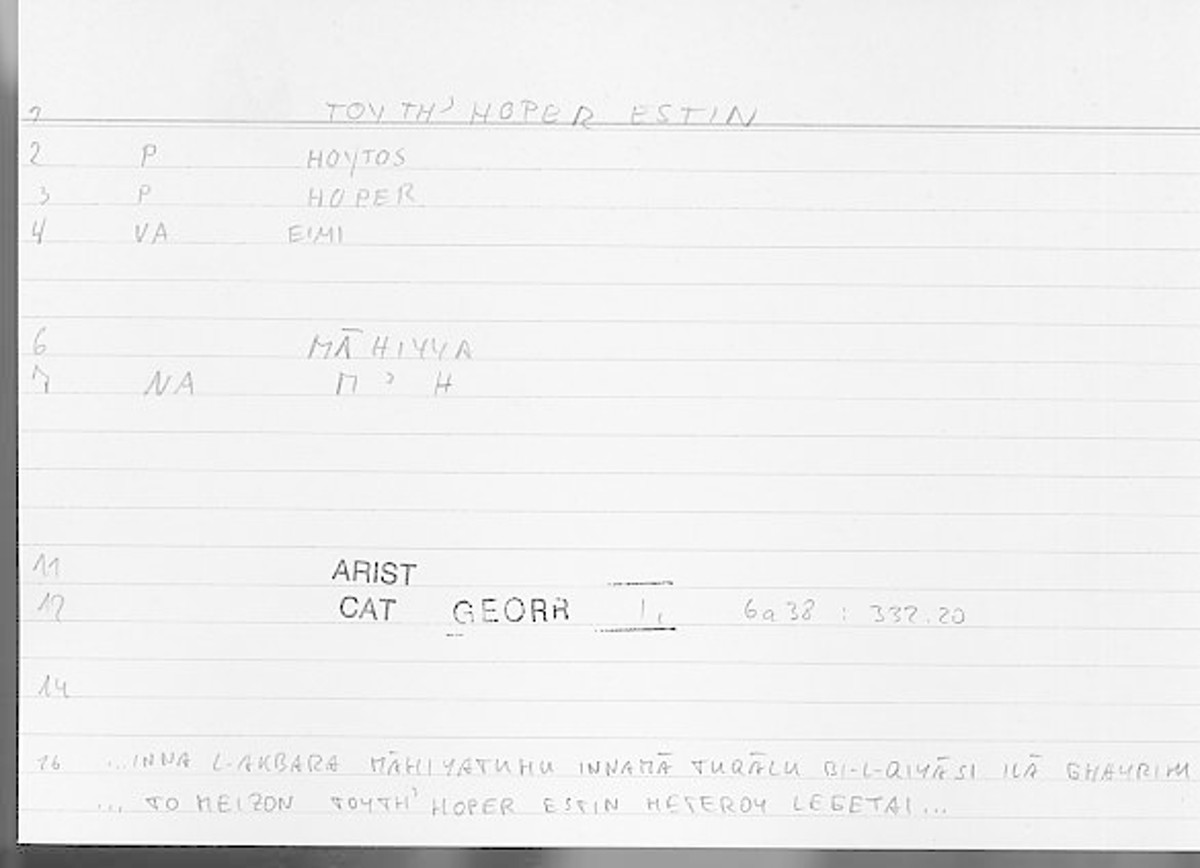 1 TOYTH' HOPER ESTIN
2 P HOYTOS
3 P HOPER
4 VA EIMI
6 MĀHIYYA
7 NA M ' H
11 ARIST
12 CAT GEORR 6a38 : 332.20
14
16 ...INNA L-AKBARA MĀHIYATUHU INNAMĀ TUQĀLU BI-L-QIYĀSI ILĀ GHAYRIHI
... TO MEIZON TOYTH' HOPER ESTIN HETEROY LEGETAI...